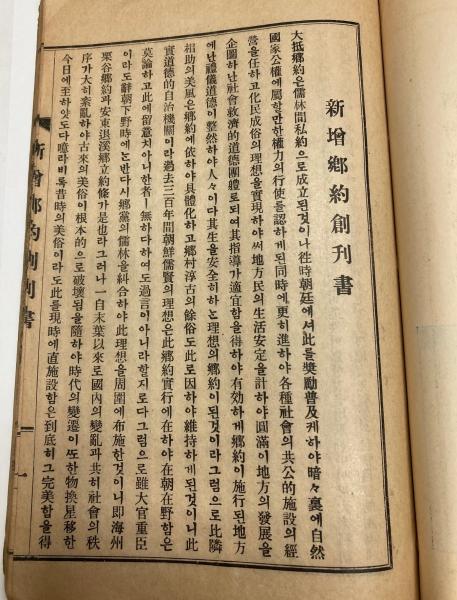 新增鄕約創刊書
大抵鄕約은儒林間私約으로成立된것이나徃時朝廷에셔此를奬勵普及케하야暗々裏에自然
國家公權에屬할만한權力의行使를認하게된同時에更히進하야各種社會의共公的施設의經
營을任하고化民成俗의理想을實現하야써地方民의生活安定을計하야圓滿이地方의發展을
企圖하난社會救濟的道德團體로되여其指導가適宜함을得하야有効하게鄕約이施行된地方
에난禮儀道德이整然하야人々이다其生을安全히하는理想의鄕約이된것이라그럼으로比隣
相助의美風은鄕約에依하야具體化하고鄕村淳古의餘俗도此로因하야維持하게된것이니此
實道德的自治機關이라過去三百年間朝鮮儒賢의理想은此鄕約實行에在하야在朝在野함은
莫論하고此에留意치아니한者ㅣ無하다하여도過言이아니라할지로다그럼으로雖大官重臣
이라도辭朝下野時에는반다시鄕黨의儒林을糾合하야此理想을周圍에布施한것이니即海州
栗谷鄕約과安東退溪鄕立約條가是也라그러나一自末葉以來로國內의變亂과共히社會의秩
序가大히紊亂하야古來의美俗이根本的으로破壞됨을隨하야時代의變遷이또한物換星移한
今日에至하얏도다噫라비록昔時의美俗이라도此를現時에直施設함은到底히그完美함을得
新增鄕約創刊書
一